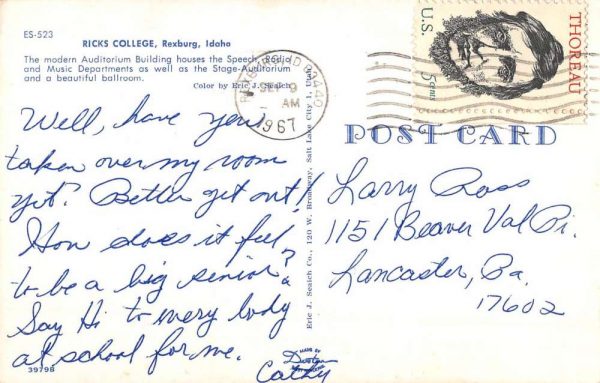 ES-523
RICKS COLLEGE, Rexburg, Idaho
The modern Auditorium Building houses the Speech, Radio
and Music Departments as well as the Stage-Auditorium
and a beautiful ballroom.
Color by Eric J. Seaich
Well, have you
taken over my room
yet? Better get out!
How does it feel
to be a big senior?
Say Hi to every body
at school for me.
Cathy
39798
MADE BY
Dexter
Eric J. Seaich Co., 120 W. Broadway, Salt Lake City 1, Utah
REXBURG, IDAHO
SEP 9
AM
1967
U.S.
5 cents
THOREAU
POST CARD
Larry Ross
1151 Beaver Val Pi.
Lancaster, Pa.
17602